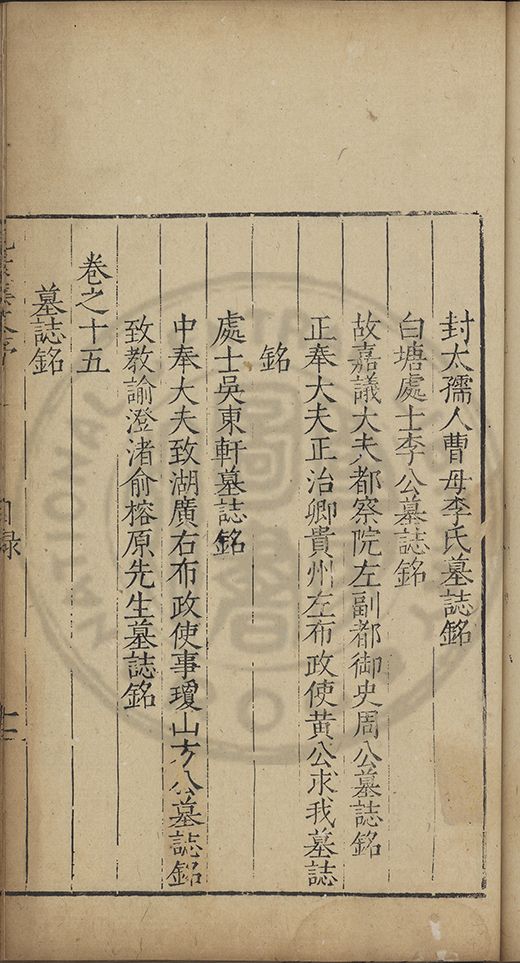 封太孺人曹母李氏墓誌銘
白塘處士李公墓誌銘
故嘉議大夫都察院左副都御史周公墓誌銘
正奉大夫正治卿貴州左布政使黃公求我墓誌
銘
處士吳東軒墓誌銘
中奉大夫致湖廣右布政使事瓊山方公墓誌銘
致教諭澄渚俞榕原先生墓誌銘
卷之十五
墓誌銘
目錄